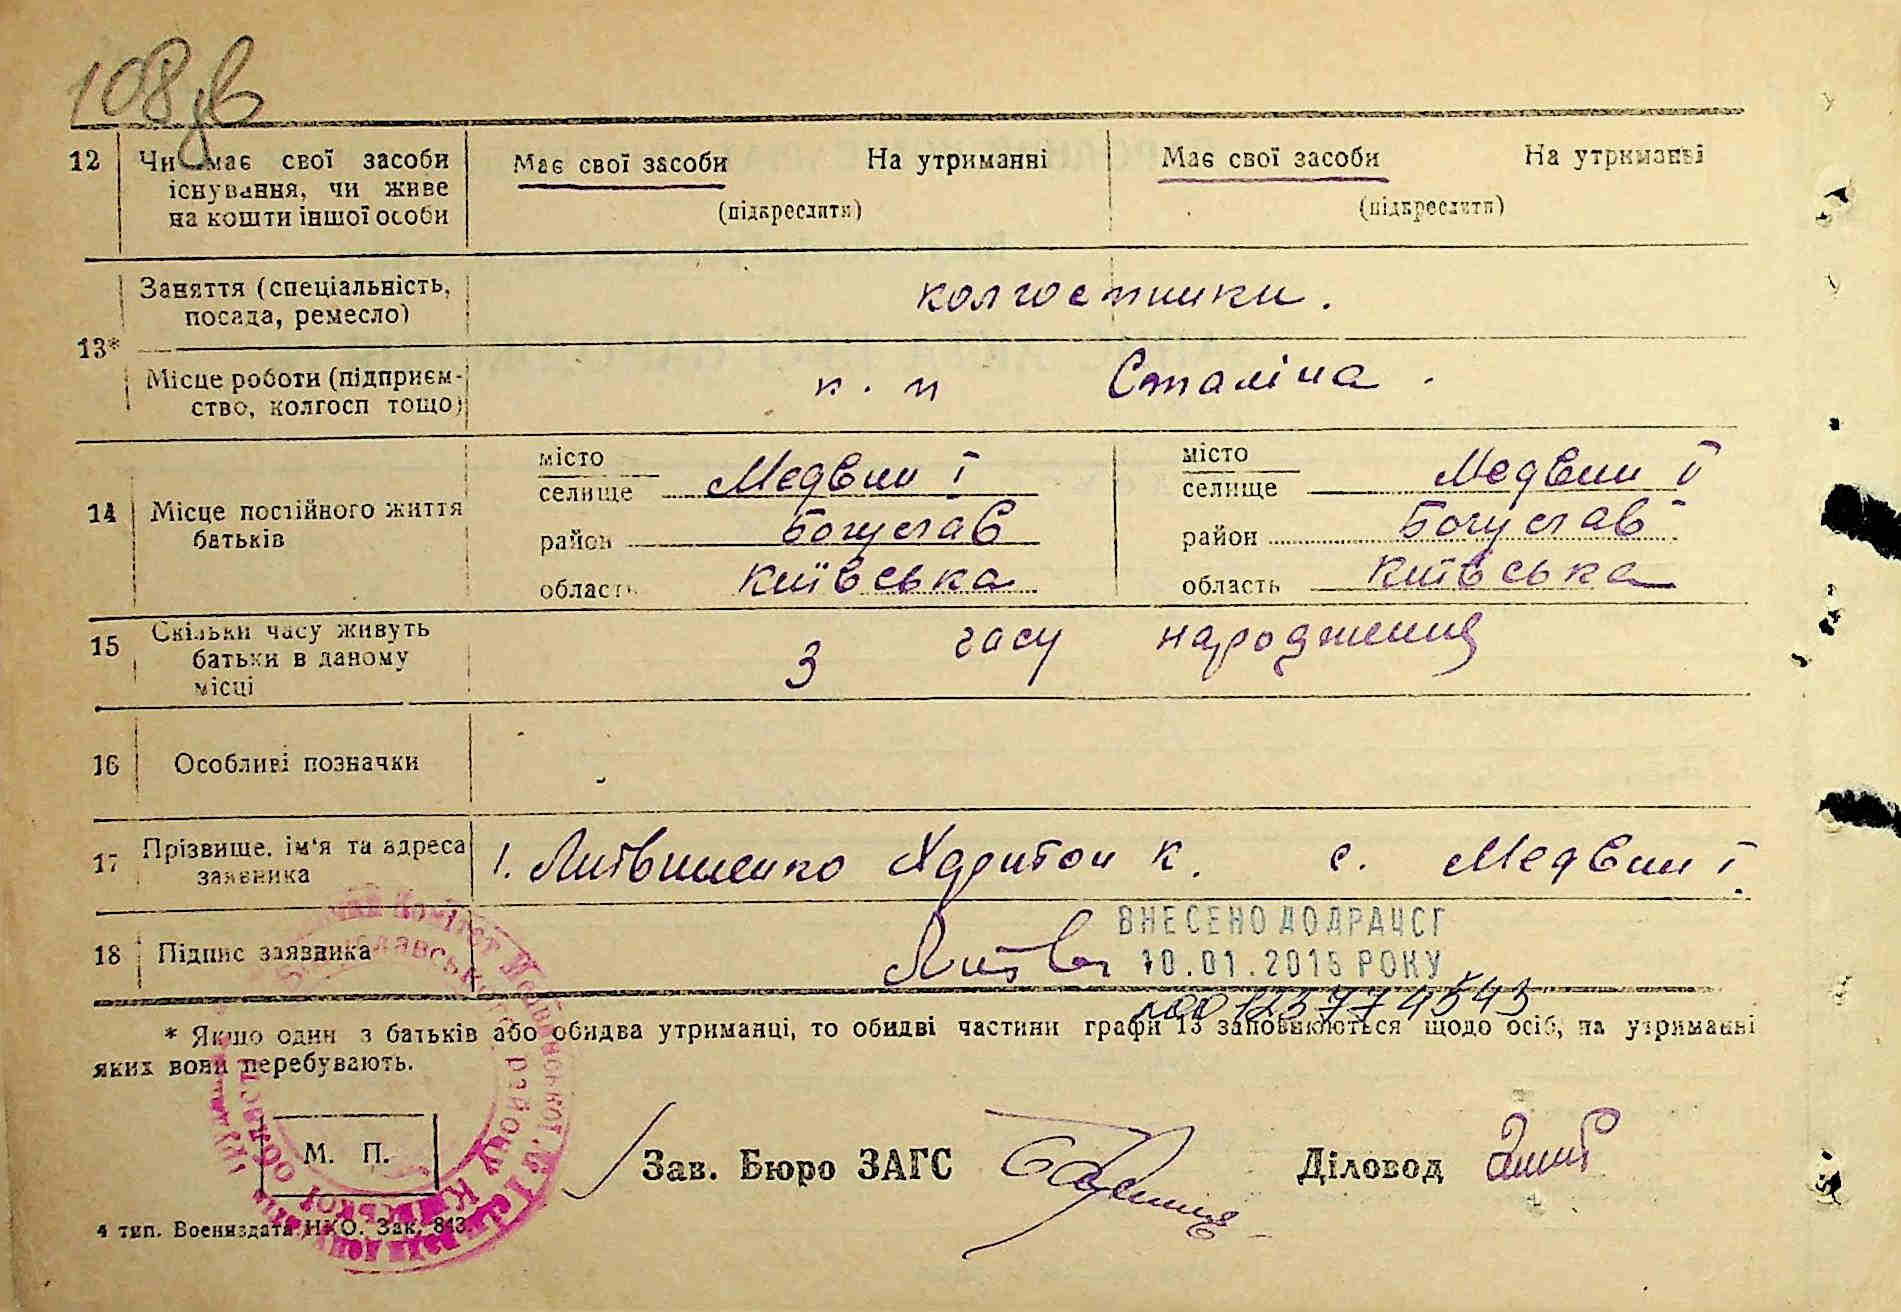 108 зв
12 Чи має свої засоби існування, чи живе на кошти іншої особи
Має свої засоби На утриманні Має свої засоби На утриманні
(підкреслити) (підкреслити)
Заняття (спеціальність, посада, ремесло)
колгоспники.
13*
Місце роботи (підприємство, колгосп тощо)
к. п Сталіна.
14 Місце постійного життя батьків
місто
селище Медвин І
район Богуслав
область Київська
місто
селище Медвин ІІ
район Богуслав
область Київська
15 Скільки часу живуть батьки в даному місці
З часу народження
16 Особливі позначки
17 Прізвище, ім'я та адреса заявника
1. Литвиненко Харитон К. с. Медвин І.
18 Підпис заявника
Литв
ВНЕСЕНО ДО ДРАЦСГ
10.01.2015 РОКУ
* Якщо один з батьків або обидва утриманці, то обидві частини графи 13 заповнюються щодо осіб, на утриманні
яких вони перебувають.
М. П.
Зав. Бюро ЗАГС Діловод
4 тип. Воениздата НКО. Зак. 843.